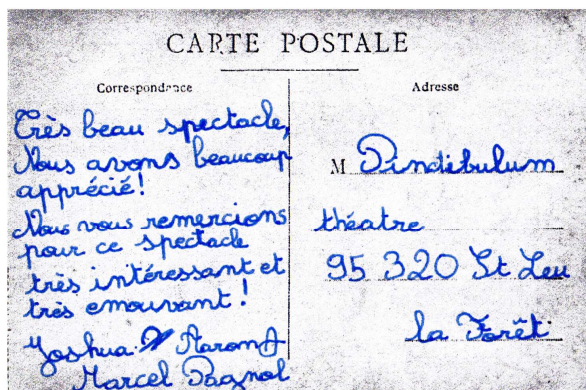 CARTE POSTALE
Correspondance
Très beau spectacle,
Nous avons beaucoup
apprécié!
Nous vous remercions
pour ce spectacle
très intéressant et
très emouvant!
Joshua Aaron A
Marcel Pagnol
Adresse
M Pindibulum
théatre
95 320 St Leu
la Forêt